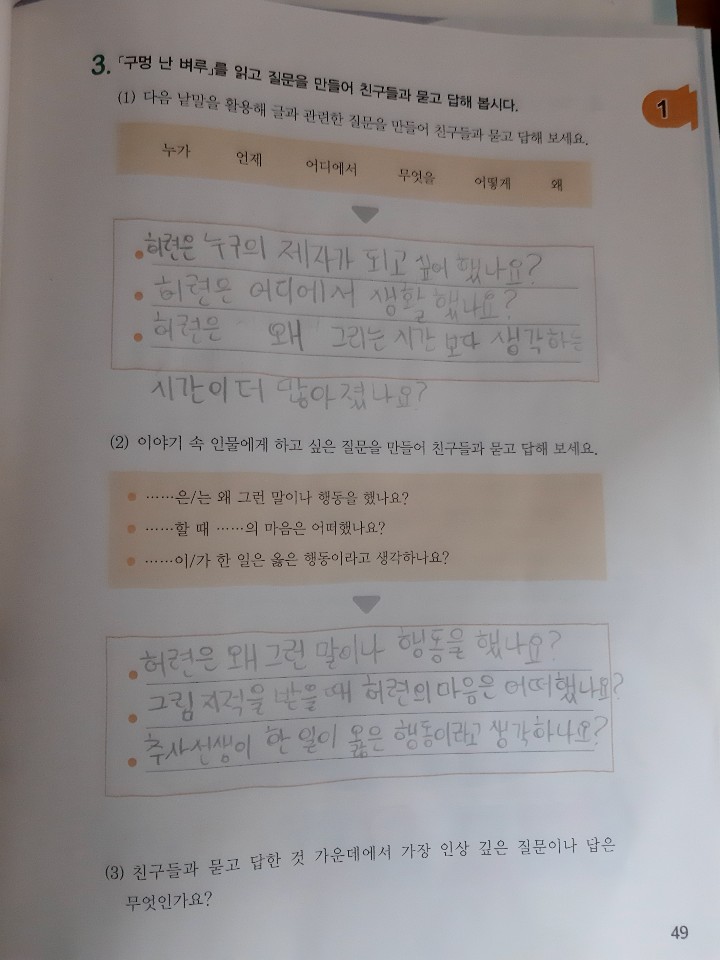 3. 「구멍 난 벼루」를 읽고 질문을 만들어 친구들과 묻고 답해 봅시다.
1
(1) 다음 낱말을 활용해 글과 관련한 질문을 만들어 친구들과 묻고 답해 보세요.
누가 언제 어디에서 무엇을 어떻게 왜
허련은 누구의 제자가 되고 싶어 했나요?
허련은 어디에서 생활 했나요?
허련은 왜 그리는 시간 보다 생각하는
시간이 더 많아졌나요?
(2) 이야기 속 인물에게 하고 싶은 질문을 만들어 친구들과 묻고 답해 보세요.
……은/는 왜 그런 말이나 행동을 했나요?
……할 때 ……의 마음은 어떠했나요?
……이/가 한 일은 옳은 행동이라고 생각하나요?
허련은 왜 그런 말이나 행동을 했나요?
그림 지적을 받을 때 허련의 마음은 어떠했나요?
추사선생이 한 일이 옳은 행동이라고 생각하나요?
(3) 친구들과 묻고 답한 것 가운데에서 가장 인상 깊은 질문이나 답은
무엇인가요?
49